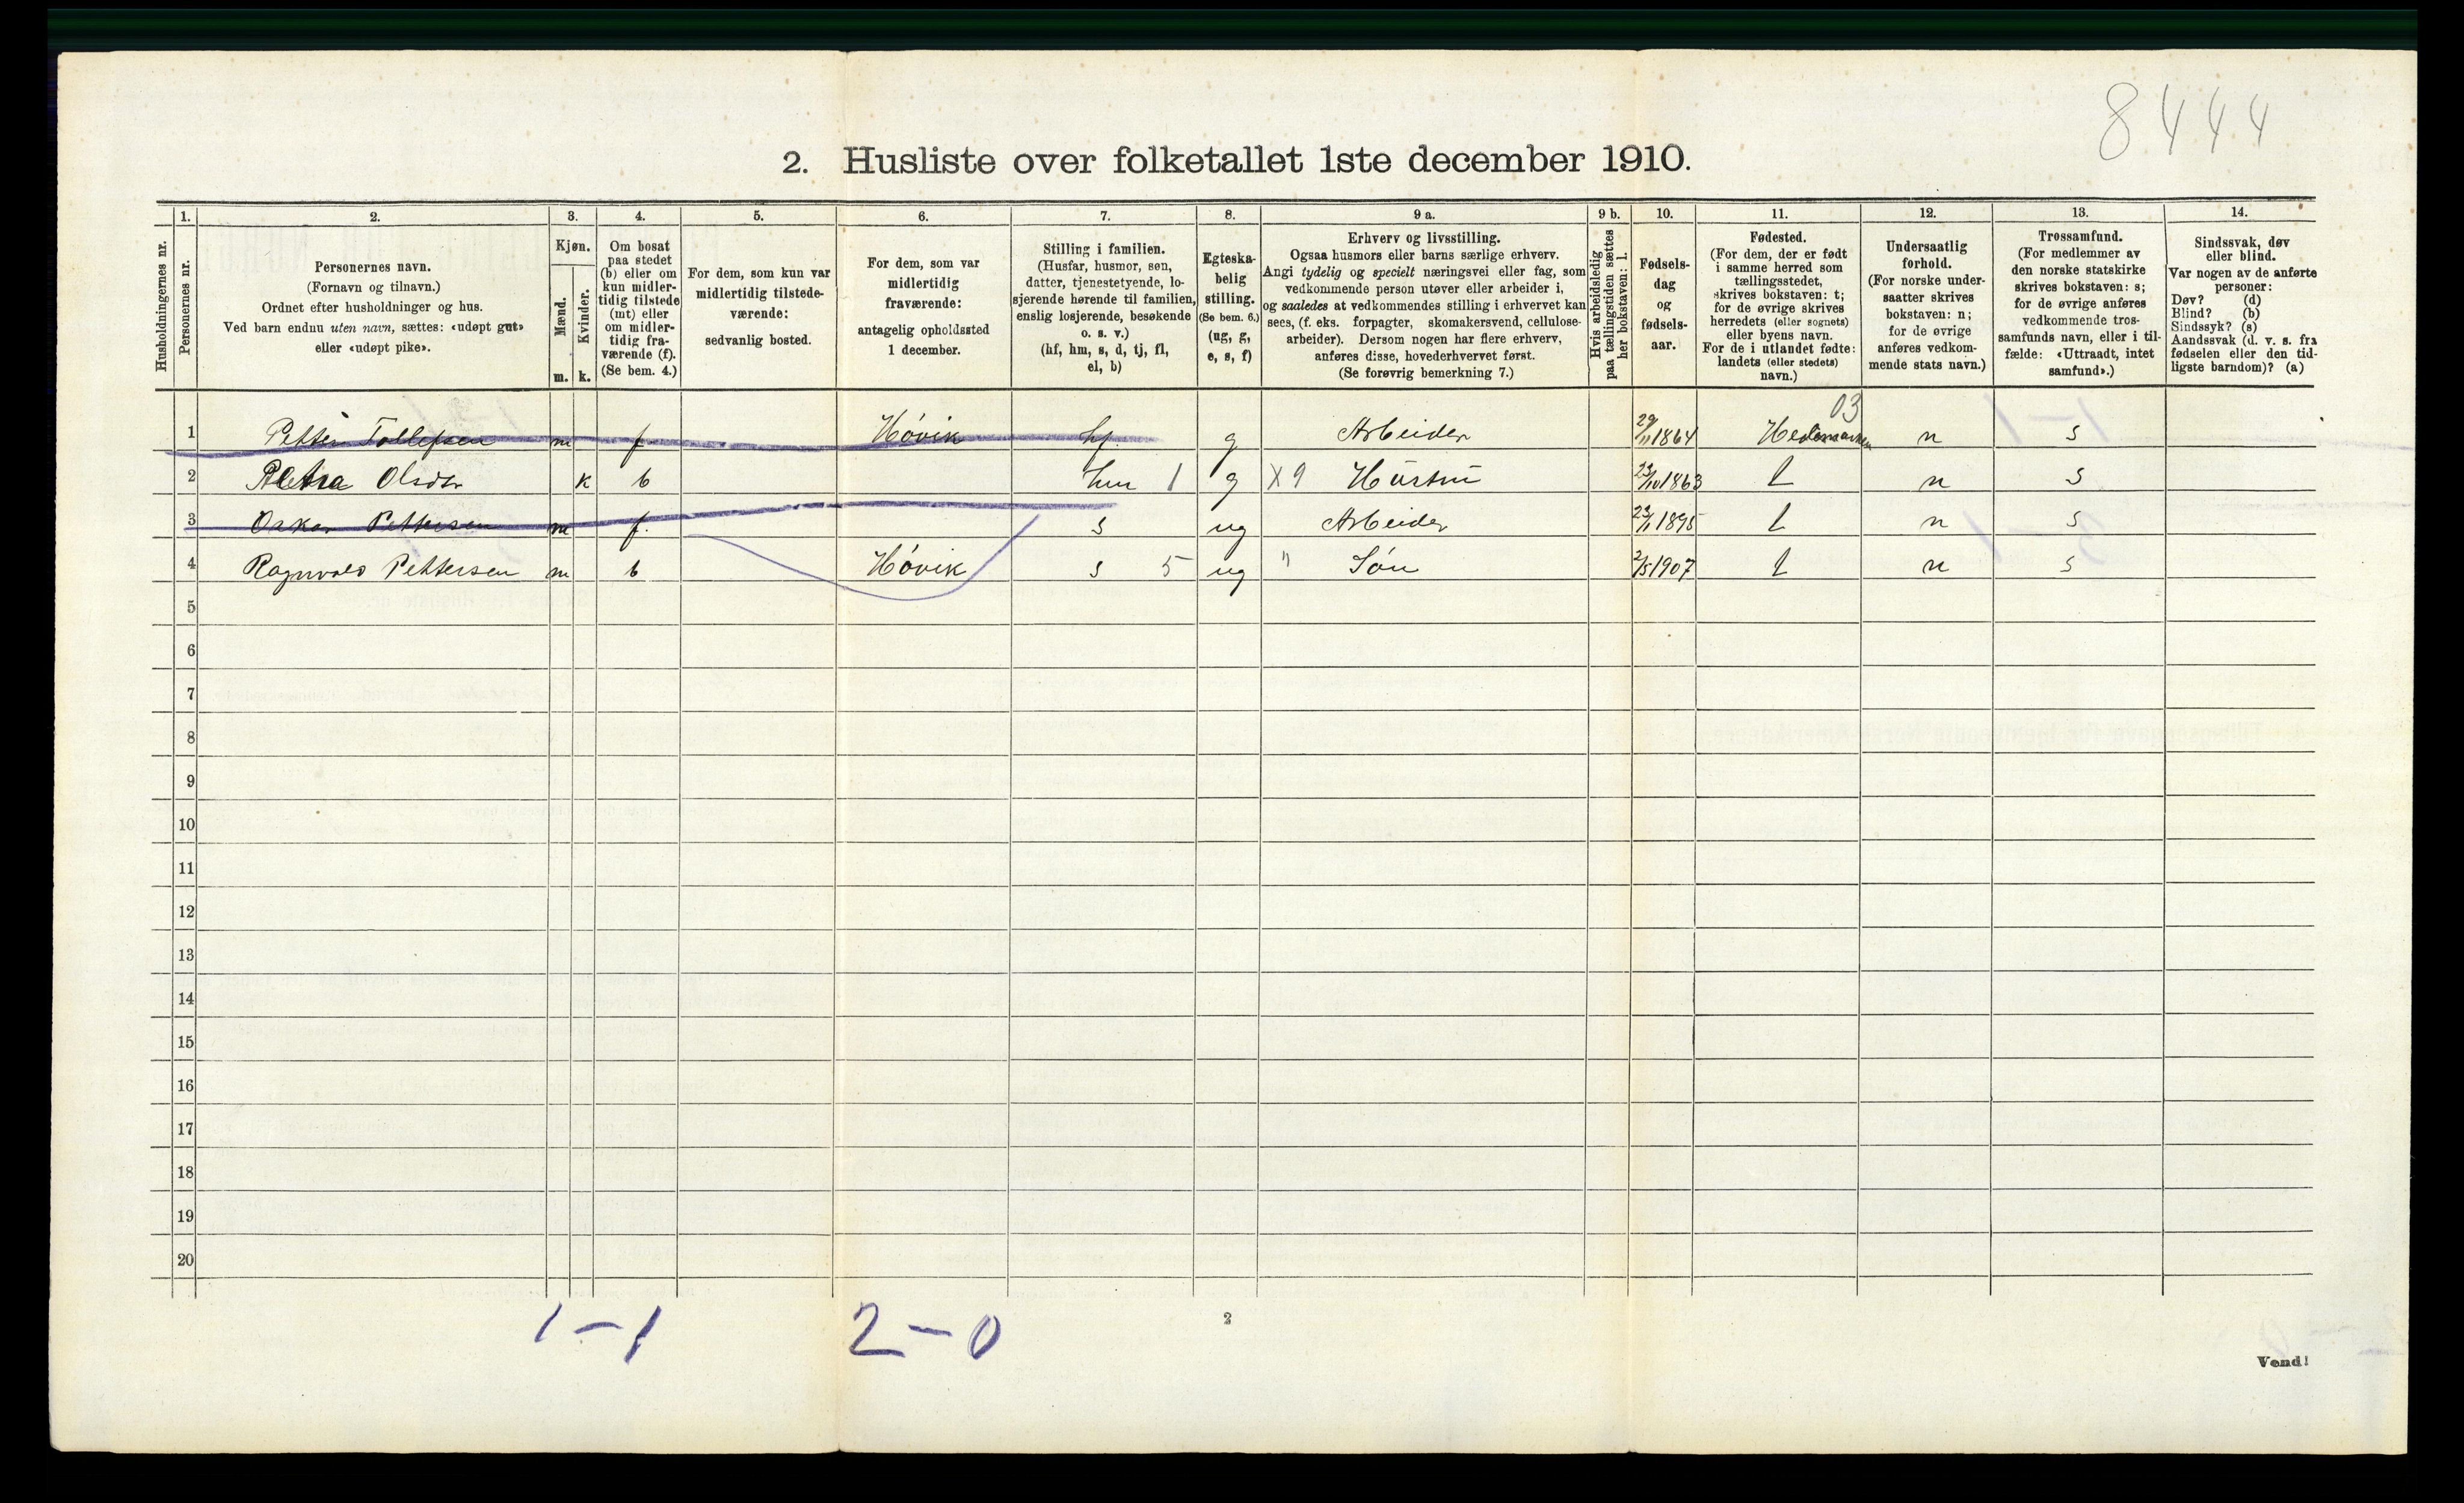 8444
2. Husliste over folketallet 1ste december 1910.
1. 2. 3. 4. 5. 6. 7. 8. 9 a. 9 b. 10. 11. 12. 13. 14.
Husholdningernes nr.
Personernes nr.
Personernes navn.
(Fornavn og tilnavn.)
Ordnet efter husholdninger og hus.
Ved barn endnu uten navn, sættes: «udøpt gut»
eller «udøpt pike».
Kjøn.
Mænd.
Kvinder.
m. k.
Om bosat
paa stedet
(b) eller om
kun midler-
tidig tilstede
(mt) eller
om midler-
tidig fra-
værende (f).
(Se bem. 4.)
For dem, som kun var
midlertidig tilstede-
værende:
sedvanlig bosted.
For dem, som var
midlertidig
fraværende:
antagelig opholdssted
1 december.
Stilling i familien.
(Husfar, husmor, søn,
datter, tjenestetyende, lo-
sjerende hørende til familien,
enslig losjerende, besøkende
o. s. v.)
(hf, hm, s, d, tj, fl,
el, b)
Egteska-
belig
stilling.
(Se bem. 6.)
(ug, g,
e, s, f)
Erhverv og livsstilling.
Ogsaa husmors eller barns særlige erhverv.
Angi tydelig og specielt næringsvei eller fag, som
vedkommende person utøver eller arbeider i,
og saaledes at vedkommendes stilling i erhvervet kan
sees, (f. eks. forpagter, skomakersvend, cellulose-
arbeider). Dersom nogen har flere erhverv,
anføres disse, hovederhvervet først.
(Se forøvrig bemerkning 7.)
Hvis arbeidsledig
paa tællingstiden sættes
her bokstaven: l.
Fødsels-
dag
og
fødsels-
aar.
Fødested.
(For dem, der er født
i samme herred som
tællingsstedet,
skrives bokstaven: t;
for de øvrige skrives
herredets (eller sognets)
eller byens navn.
For de i utlandet fødte:
landets (eller stedets)
navn.)
Undersaatlig
forhold.
(For norske under-
saatter skrives
bokstaven: n;
for de øvrige
anføres vedkom-
mende stats navn.)
Trossamfund.
(For medlemmer av
den norske statskirke
skrives bokstaven: s;
for de øvrige anføres
vedkommende tros-
samfunds navn, eller i til-
fælde: «Uttraadt, intet
samfund».)
Sindssvak, døv
eller blind.
Var nogen av de anførte
personer:
Døv? (d)
Blind? (b)
Sindssyk? (s)
Aandssvak (d. v. s. fra
fødselen eller den tid-
ligste barndom)? (a)
03
1 Petter Tollefsen m f. Høvik hf. g Arbeider 29/11 1864 Hedemarken n s
2 Petra Olsdtr k b hm 1 g X 9 Hustru 23/10 1863 t n s
3 Oskar Pettersen m f. s ug Arbeider 1895 t n s
4 Ragnvald Pettersen m b Høvik s 5 ug " Søn 2/5 1907 t n s
5
6
7
8
9
10
11
12
13
14
15
16
17
18
19
20
1 - 1 2 - 0
2
Vend!